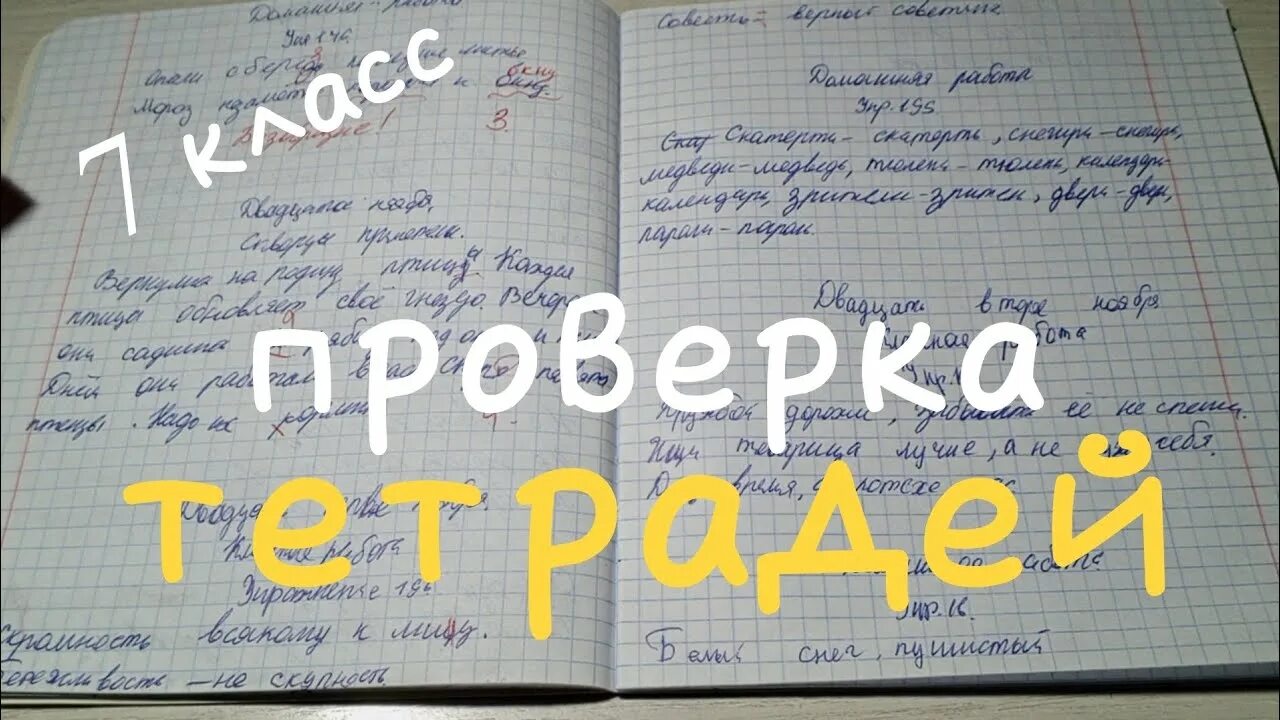 7 класс
проверка
тетрадей
Домашняя работа
Упр 176
Опали с берёз последние листья
Мороз к окну
окну
3.
Двадцатое ноября
Скворцы прилетели.
Вернулись на родину птицы. Каждая
птицы обновляет своё гнездо. Вечером
они садится
Дней они работали
птецы. Надо их кормить
4.
работа
Упражнение 195
Скромность всякому к лицу.
Бережливость – не скупность.
Совесть – верный советник
Домашняя работа
Упр. 195
Скат Скатерти – скатерть, снегири – снегирь,
медведи – медведь, тюлени – тюлень, календари –
календарь, зрители – зрител, двери – двер,
пароли – парол.
Двадцать второе ноября
Классная работа
Упр.
Дружбой дорожи, забывать её не спеши.
Ищи товарища лучше, а не себя.
время, час
работа
Упр. 16.
Белый снег, пушистый